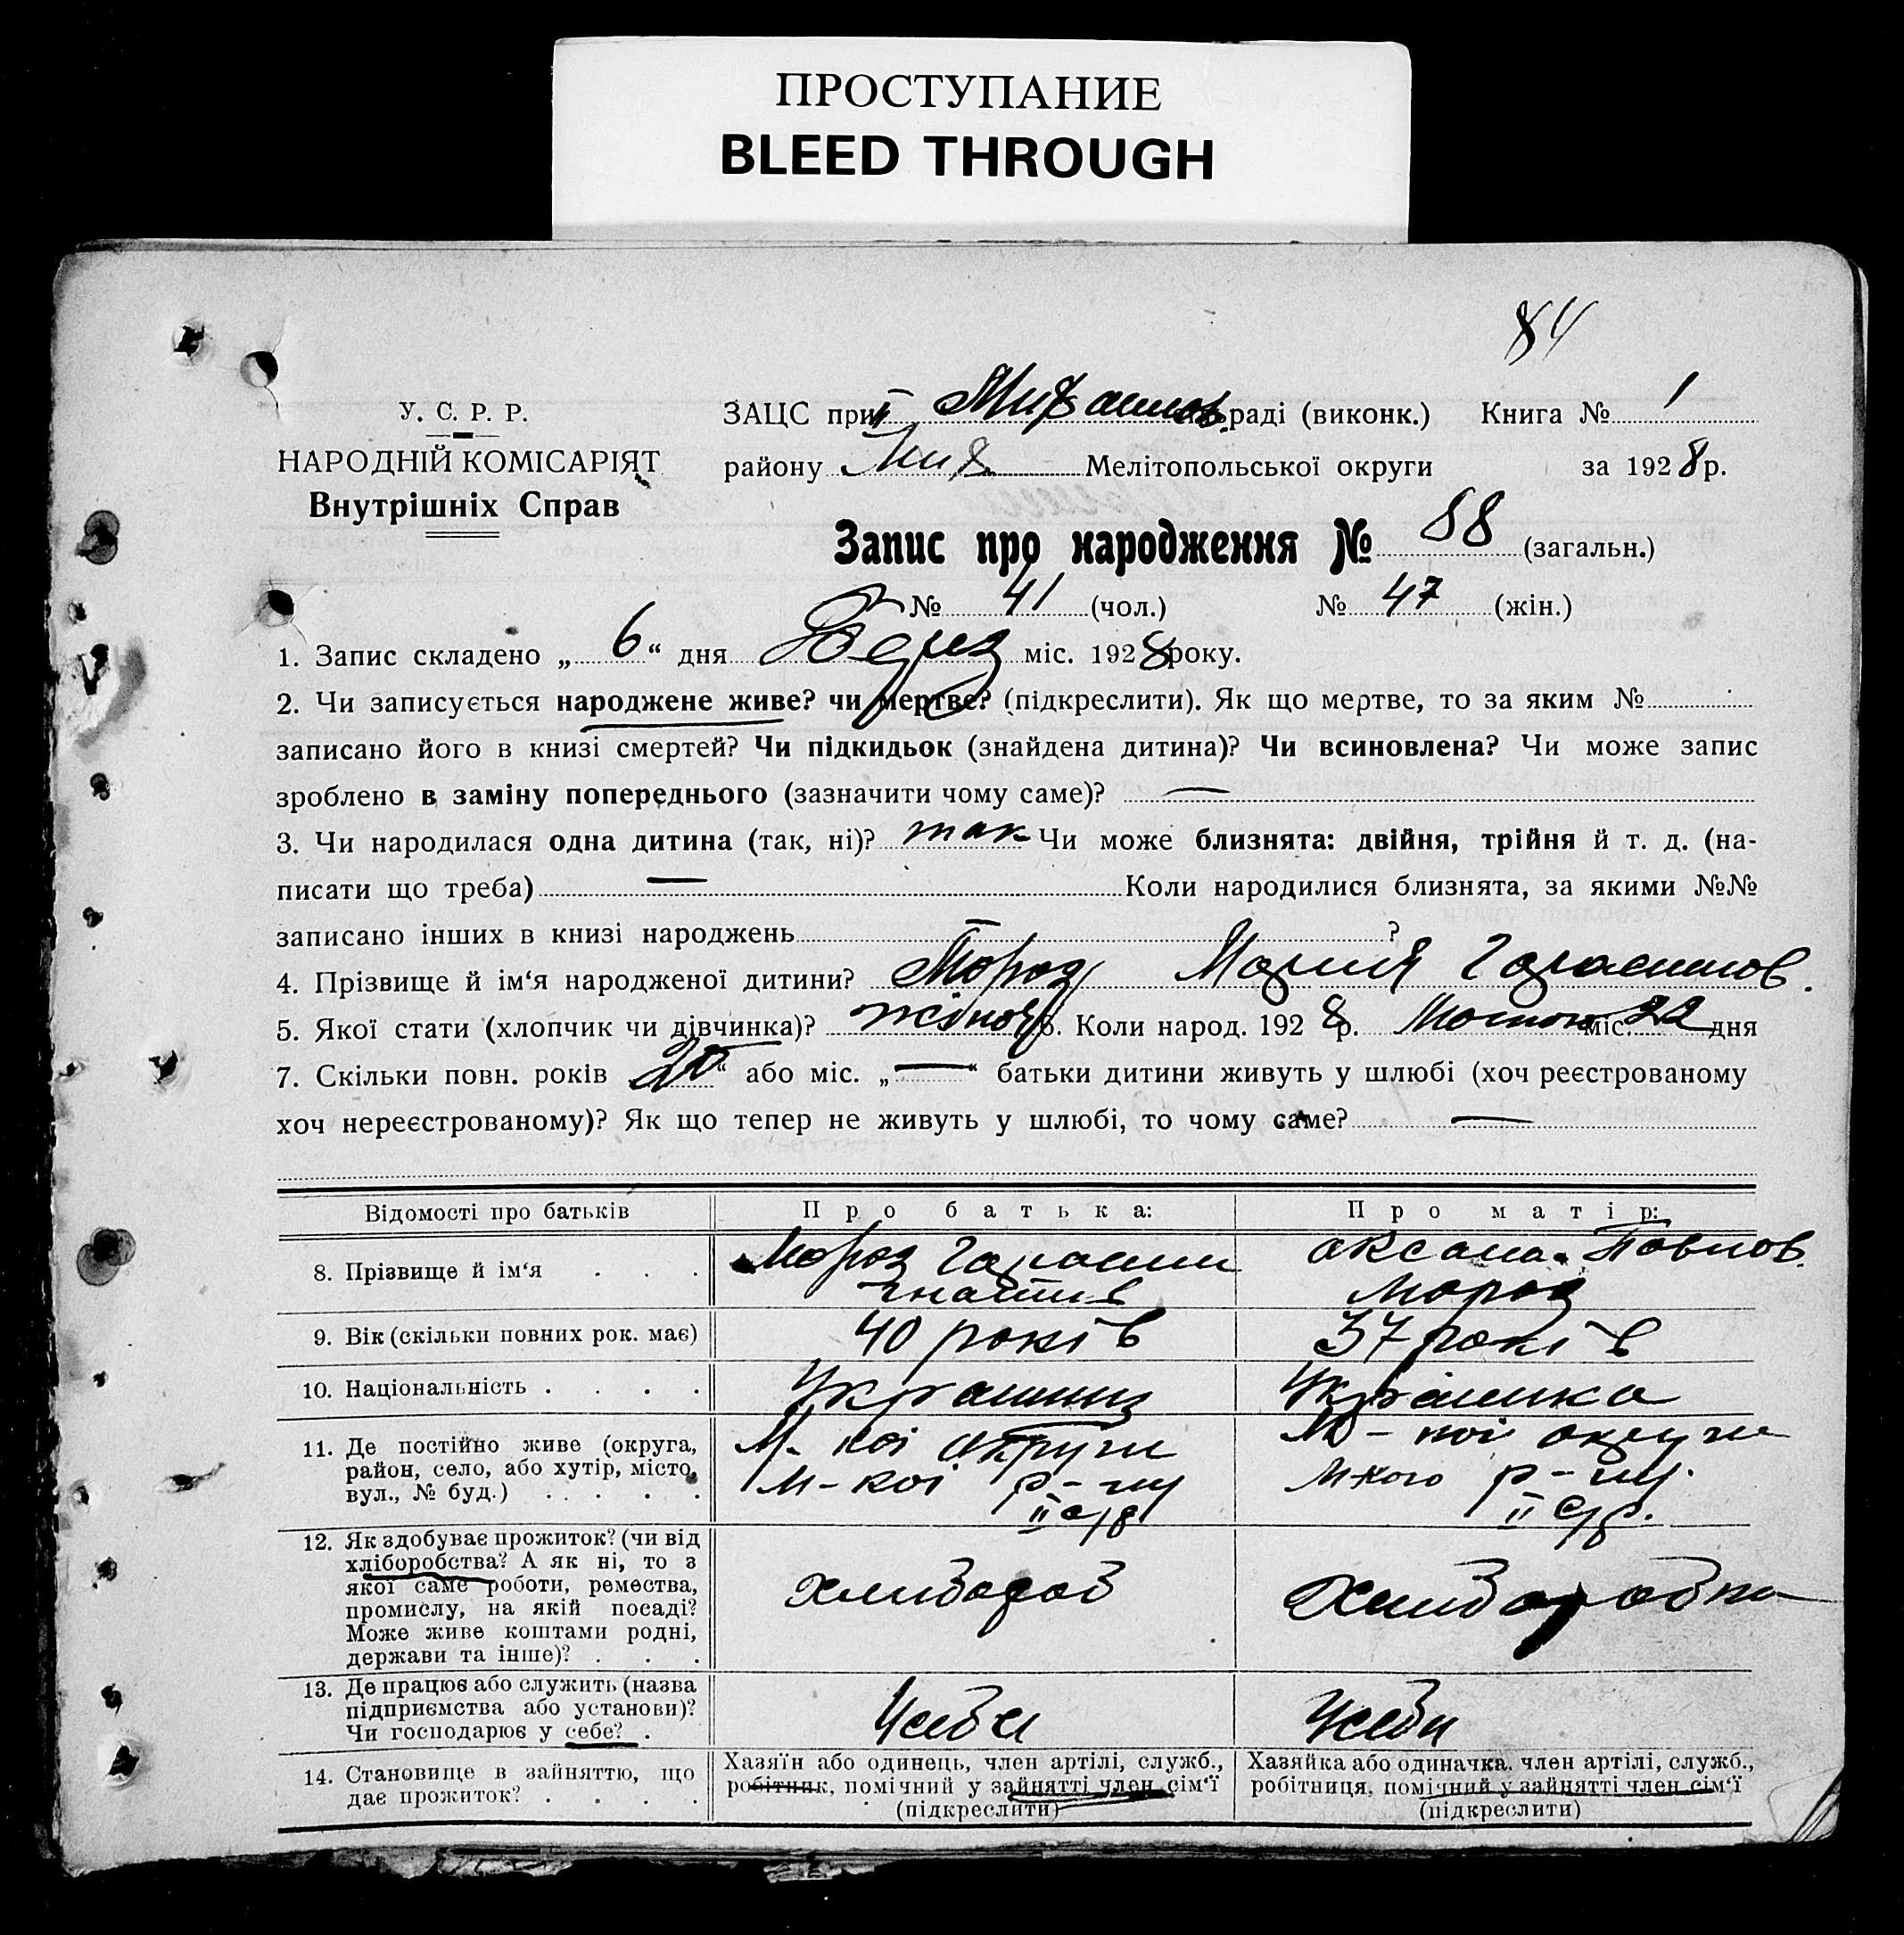 ПРОСТУПАНИЕ
BLEED THROUGH
84
У. С. Р. Р.
НАРОДНІЙ КОМІСАРІЯТ
Внутрішніх Справ
ЗАЦС при II Михайлов. раді (виконк.) Книга № 1
району Мих. Мелітопольської округи за 1928 р.
Запис про народження № 88 (загальн.)
№ 41 (чол.) № 47 (жін.)
1. Запис складено „ 6 “ дня Берез міс. 1928 року.
2. Чи записується народжене живе? чи мертве? (підкреслити). Як що мертве, то за яким №
записано його в книзі смертей? Чи підкидьок (знайдена дитина)? Чи всиновлена? Чи може запис
зроблено в заміну попереднього (зазначити чому саме)? —
3. Чи народилася одна дитина (так, ні)? так Чи може близнята: двійня, трійня й т. д. (на-
писати що треба) — Коли народилися близнята, за якими №№
записано інших в книзі народжень ?
4. Прізвище й ім‘я народженої дитини? Мороз Мария Гарасимов.
5. Якої стати (хлопчик чи дівчинка)? жіноч 6. Коли народ. 1928 р. Лютого міс. 22 дня
7. Скільки повн. років „ 20 “ або міс. „ — “ батьки дитини живуть у шлюбі (хоч реєстрованому
хоч нереєстрованому)? Як що тепер не живуть у шлюбі, то чому саме? —
Відомості про батьків Про батька: Про матір:
8. Прізвище й ім‘я . . . Мороз Гарасим Гнатив Оксана Павлов. Мороз
9. Вік (скільки повних рок. має) 40 років 37 років
10. Національність . . . . Украинец Українка
11. Де постійно живе (округа, М-кої округи М-кої округи
район, село, або хутір, місто, М-кої р-ну М-кого р-ну
вул., № буд.) . . . . . II с/р II с/р.
12. Як здобуває прожиток? (чи від
хліборобства? А як ні, то з
якої саме роботи, ремества, хлибороб Хлиборобка
промислу, на якій посаді?
Може живе коштами родні,
держави та інше)? . . .
13. Де працює або служить (назва
підприємства або установи)? У себе У себи
Чи господарює у себе? .
14. Становище в зайняттю, що Хазяїн або одинець, член артілі, служб., Хазяйка або одиначка, член артілі, служб.,
дає прожиток? . . . . робітник, помічний у зайнятті член сім‘ї робітниця, помічний у зайнятті член сім‘ї
(підкреслити) (підкреслити)